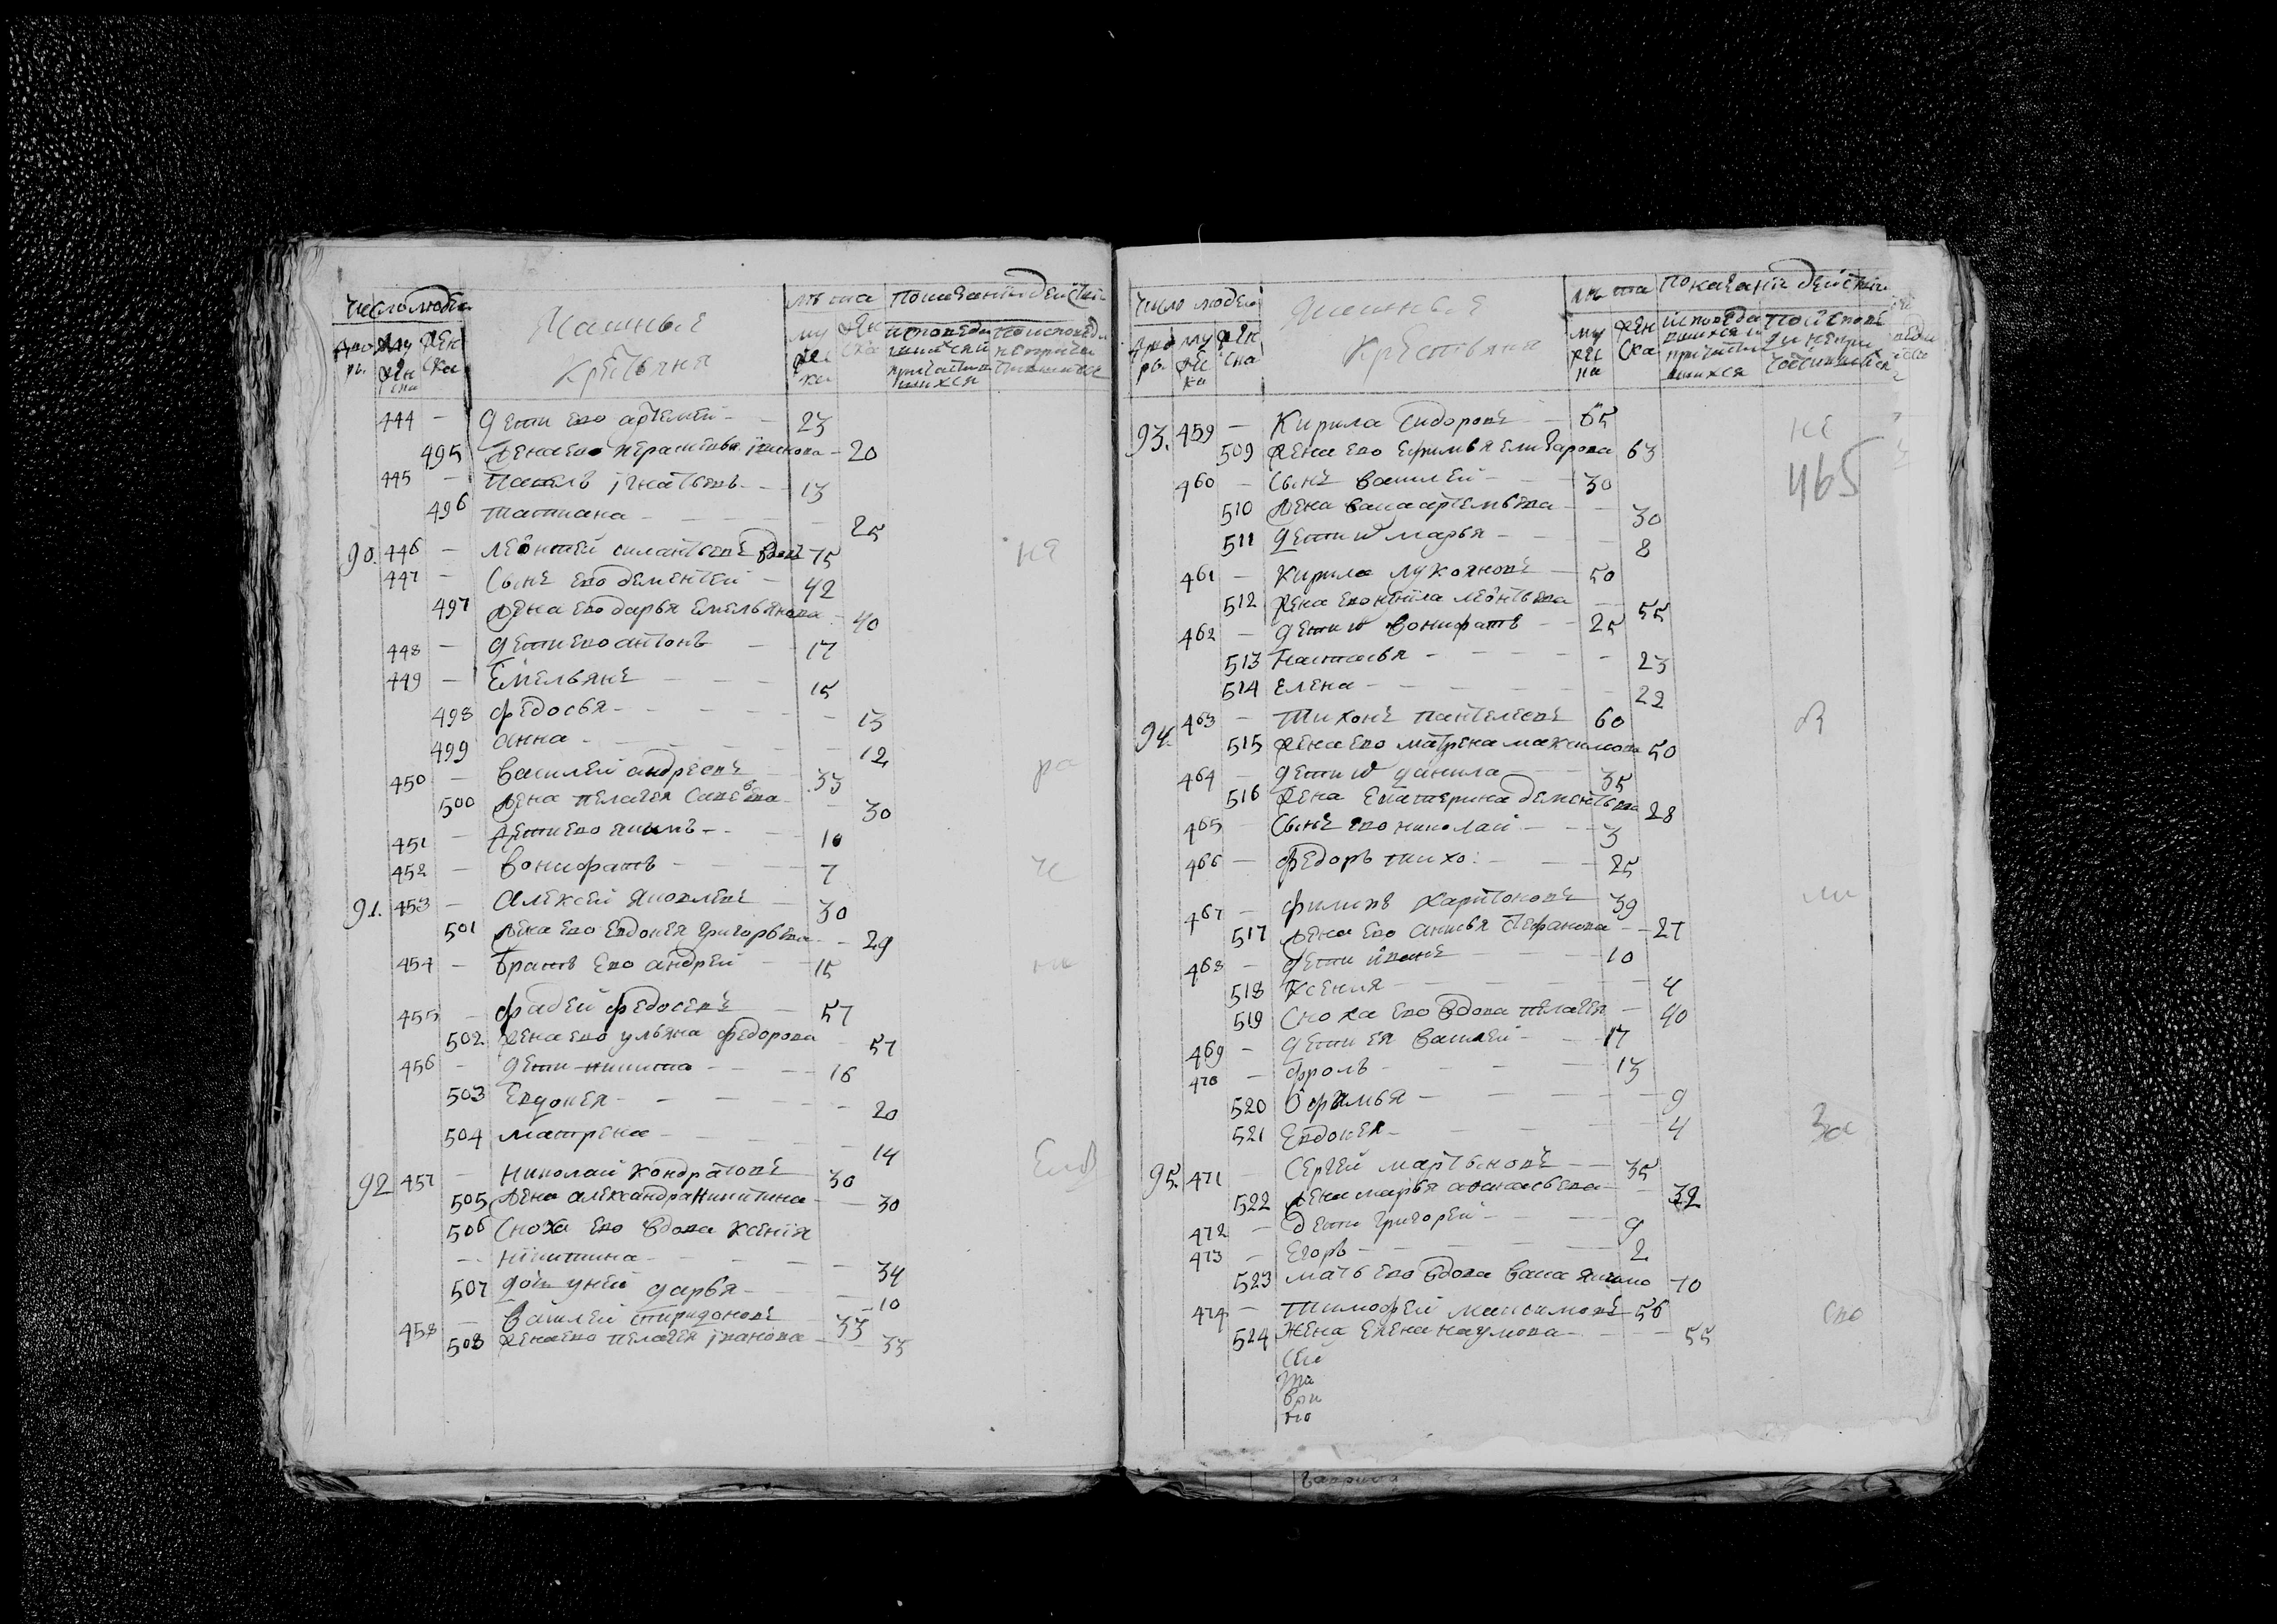 Число людеи
лѣта
показанїи действи
дво ръ.
муженска
женска
муже ска
женска
крестьяня
444 — дети ево артемеи — 23
495 жена ево парасковья — 20
445 — павелъ игнатьевъ — 13
496 татиана — 25
90. 446 — леонтей силантьевъ вдовъ 75 не
447 — сынъ ево дементей — 42
497 жена ево дарья емельянова — 40
448 — дети ево антонъ — 17
449 — емельянъ — 15
498 федосья — 13
499 анна — 12
450 — василей андреевъ 33 ра
500 жена пелагея савельева — 30
451 — дети ево якимъ — 10
452 — вонифатъ — 7
91. 453 — алексей яковлевъ — 30
501 жена ево евдокея григорьева — 29
454 — братъ ево андрей — 15
455 — фадей федосеевъ — 57
502 жена ево ульяна федорова 57
456 — дети никита — 16
503 евдокея — 20
504 матрена — 14
92 457 — николай кондратовъ 30
505 жена александра никитина — 30
506 сноха ево вдова ксения
— никитина — 34
507 дочь у ней дарья — 10
458 — василей спиридоновъ — 33
508 жена ево пелагея iванова — 33
Число людеи
лѣта
показанїи действи
дво ръ.
муже ска
женска
муже ска
женска
крестьяня
93. 459 — кирила сидоровъ — 65 не
509 жена ево ефимья елизарова 63
460 — сынъ василей — 30 465
510 жена васа артемьева — 30
511 дети и марья — 8
461 — кирила лукояновъ — 50
512 жена ево ненила леонтьева — 55
462 — дети и вонифатъ — 25
513 настасья — 23
514 елена — 22
94. 463 — тихонъ пантелеевъ 60
515 жена ево матрена максимова 50
464 — дети и данила — 35
516 жена екатерина дементьева 28
465 сынъ ево николай — 3
466 — федоръ тихо: — 25
467 — филипъ харитоновъ 39
517 жена ево анисья стефанова — 27
468 — дети иванъ — 10
518 ксения — 4
519 сноха ево вдова пелагея — 40
469 — дети ея василей — 17
470 — фролъ — 13
520 офимья — 9
521 евдокея — 4 за
95. 471 — сергей мартыновъ — 35
522 жена марья афанасьева — 32
472 — дети григорей — 9
473 — егоръ — 2
523 мать ево вдова васа 70
474 — тимофей максимовъ 56 сво
524 жена елена наумова — 55
сей
та
ври
но